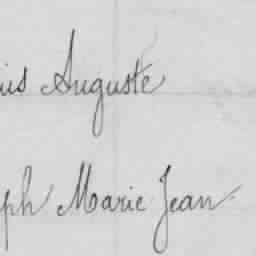 uis Auguste
ph Marie Jean